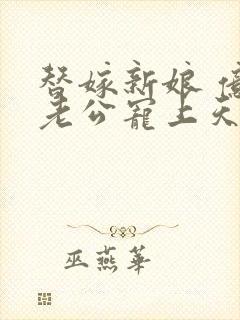 替嫁新娘 億
老公寵上天
巫燕華